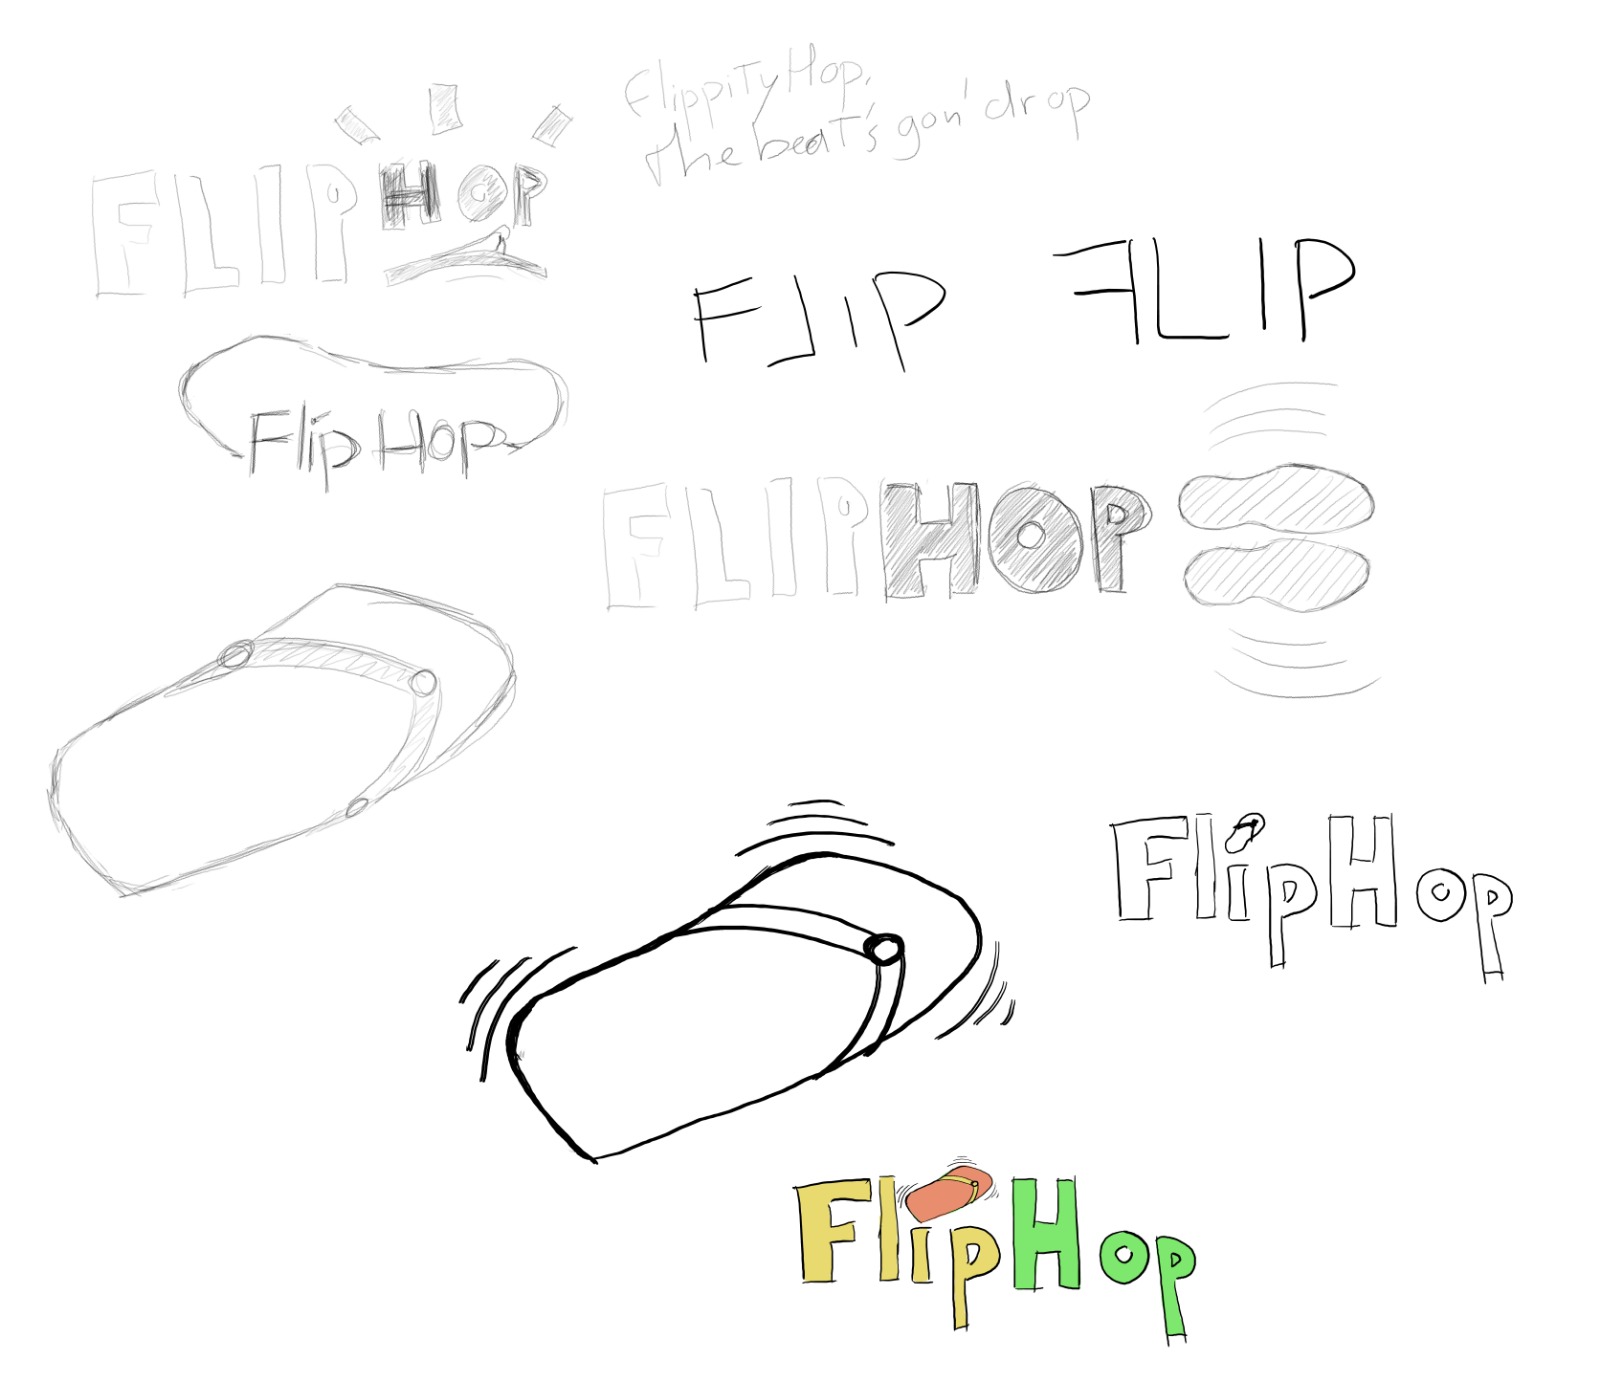 FlippiTy Hop,
The beaT's gon' drop
FLIPHOP
FLIP
FLIP
Flip Hop
FLIPHOP
FlipHop
FlipHop